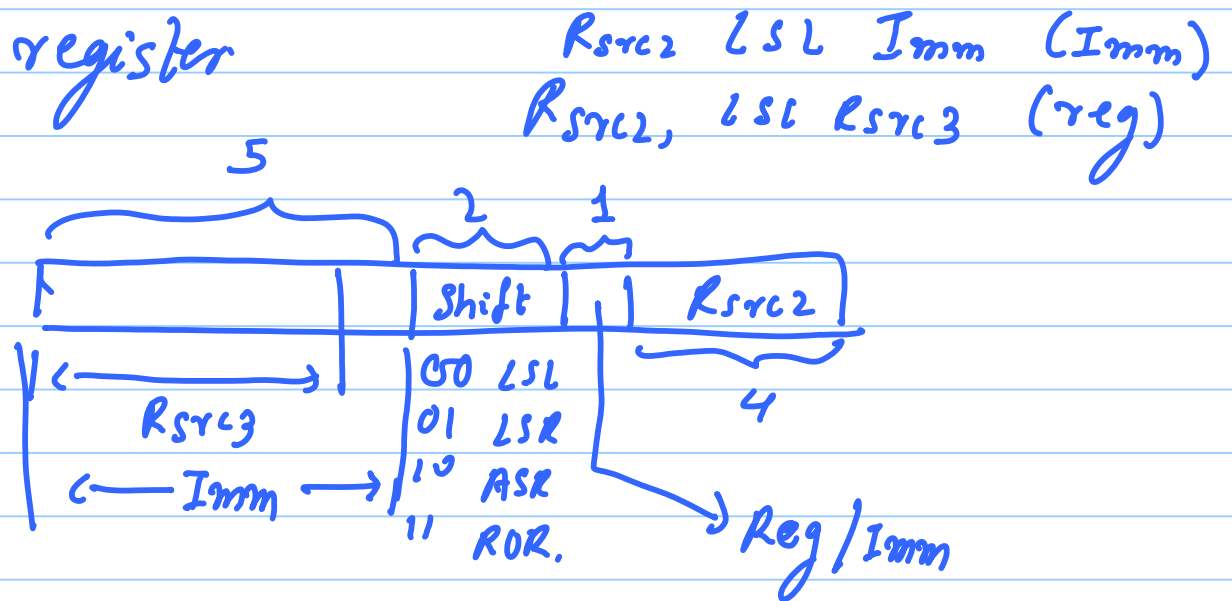 register Rsrc2 LSL Imm (Imm)
Rsrc2, LSL Rsrc3 (reg)
5 2 1
Shift Rsrc2
Rsrc3 00 LSL 4
01 LSR
Imm 10 ASR
11 ROR. Reg/Imm